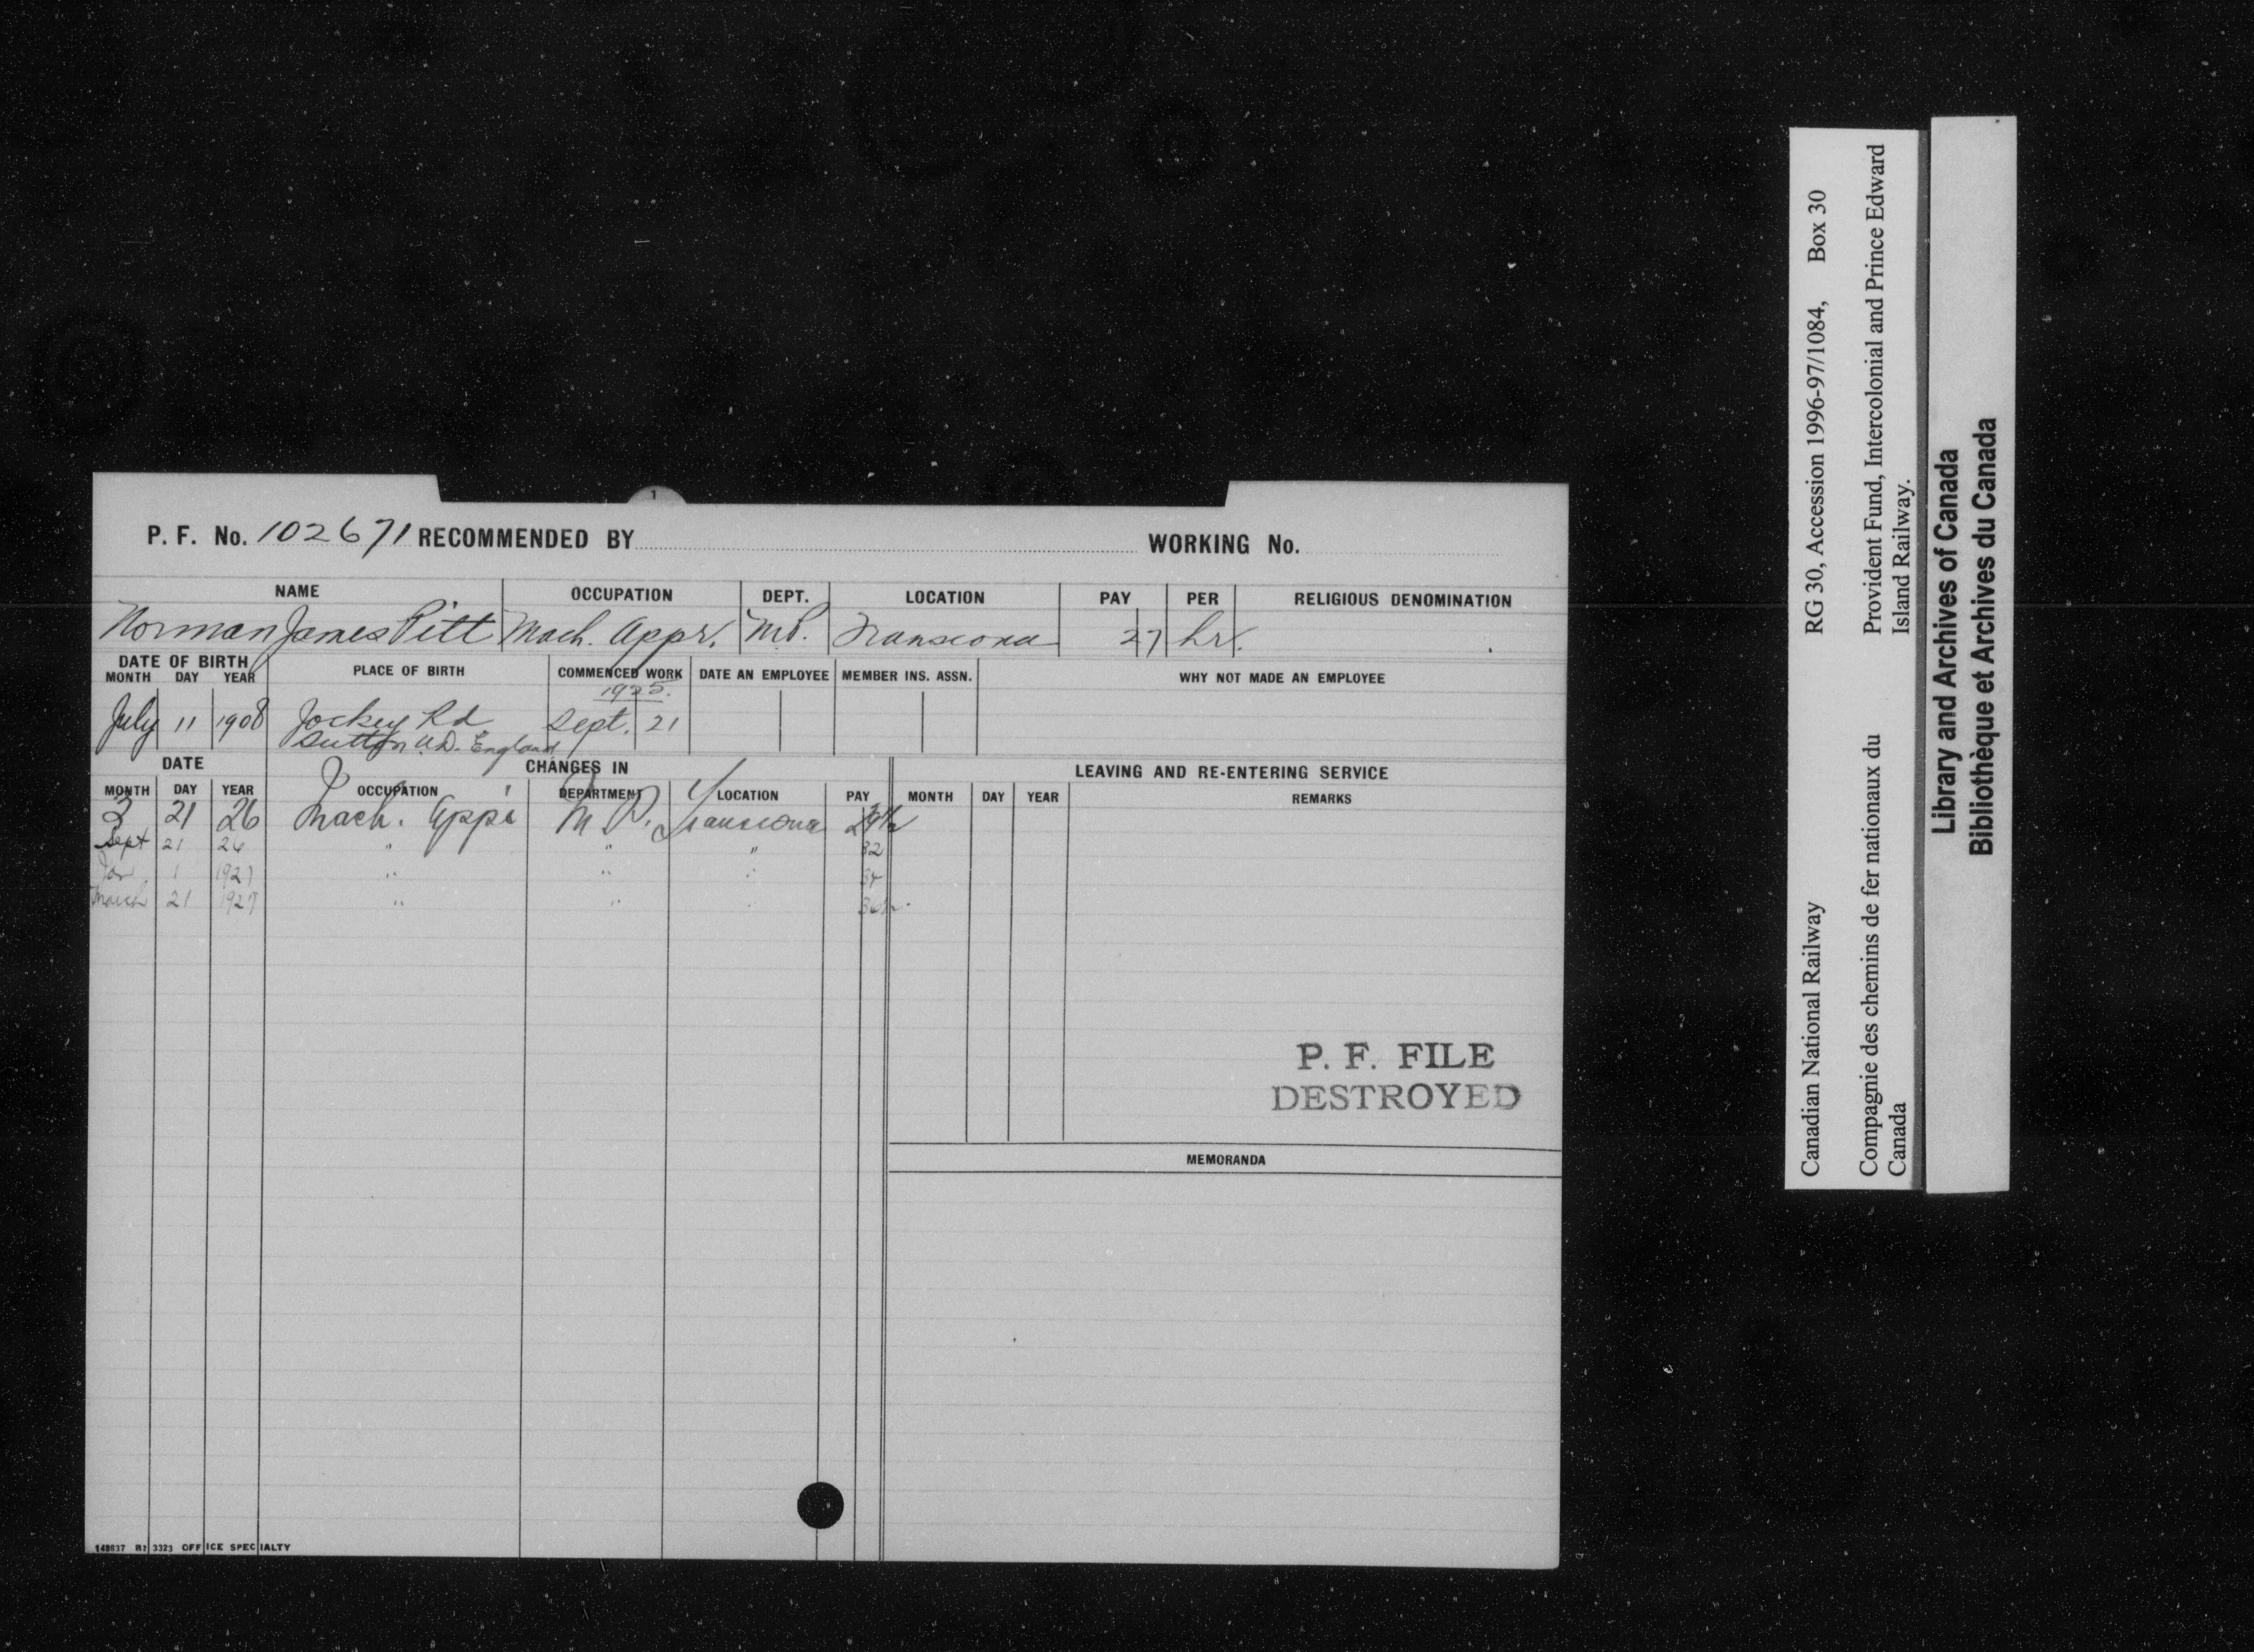 1
P. F. No. 102671 RECOMMENDED BY WORKING No.
NAME OCCUPATION DEPT. LOCATION PAY PER RELIGIOUS DENOMINATION
Norman James Pitt Mach. Appr. M.P. Transcona 27 hr.
DATE OF BIRTH PLACE OF BIRTH COMMENCED WORK DATE AN EMPLOYEE MEMBER INS. ASSN. WHY NOT MADE AN EMPLOYEE
MONTH DAY YEAR
1925.
July 11 1908 Jockey Rd Sept. 21
Sutton England
DATE CHANGES IN LEAVING AND RE-ENTERING SERVICE
MONTH DAY YEAR OCCUPATION DEPARTMENT LOCATION PAY MONTH DAY YEAR REMARKS
3 21 26 Mach. Appr M.P. Transcona 29½
Sept 21 26 " " " 32
Jan 1 1927 " " " 34
March 21 1927 " " " 36½
P. F. FILE
DESTROYED
MEMORANDA
148637 3323 OFFICE SPECIALTY
Canadian National Railway RG 30, Accession 1996-97/1084, Box 30
Compagnie des chemins de fer nationaux du Canada
Provident Fund, Intercolonial and Prince Edward Island Railway.
Library and Archives of Canada
Bibliothèque et Archives du Canada